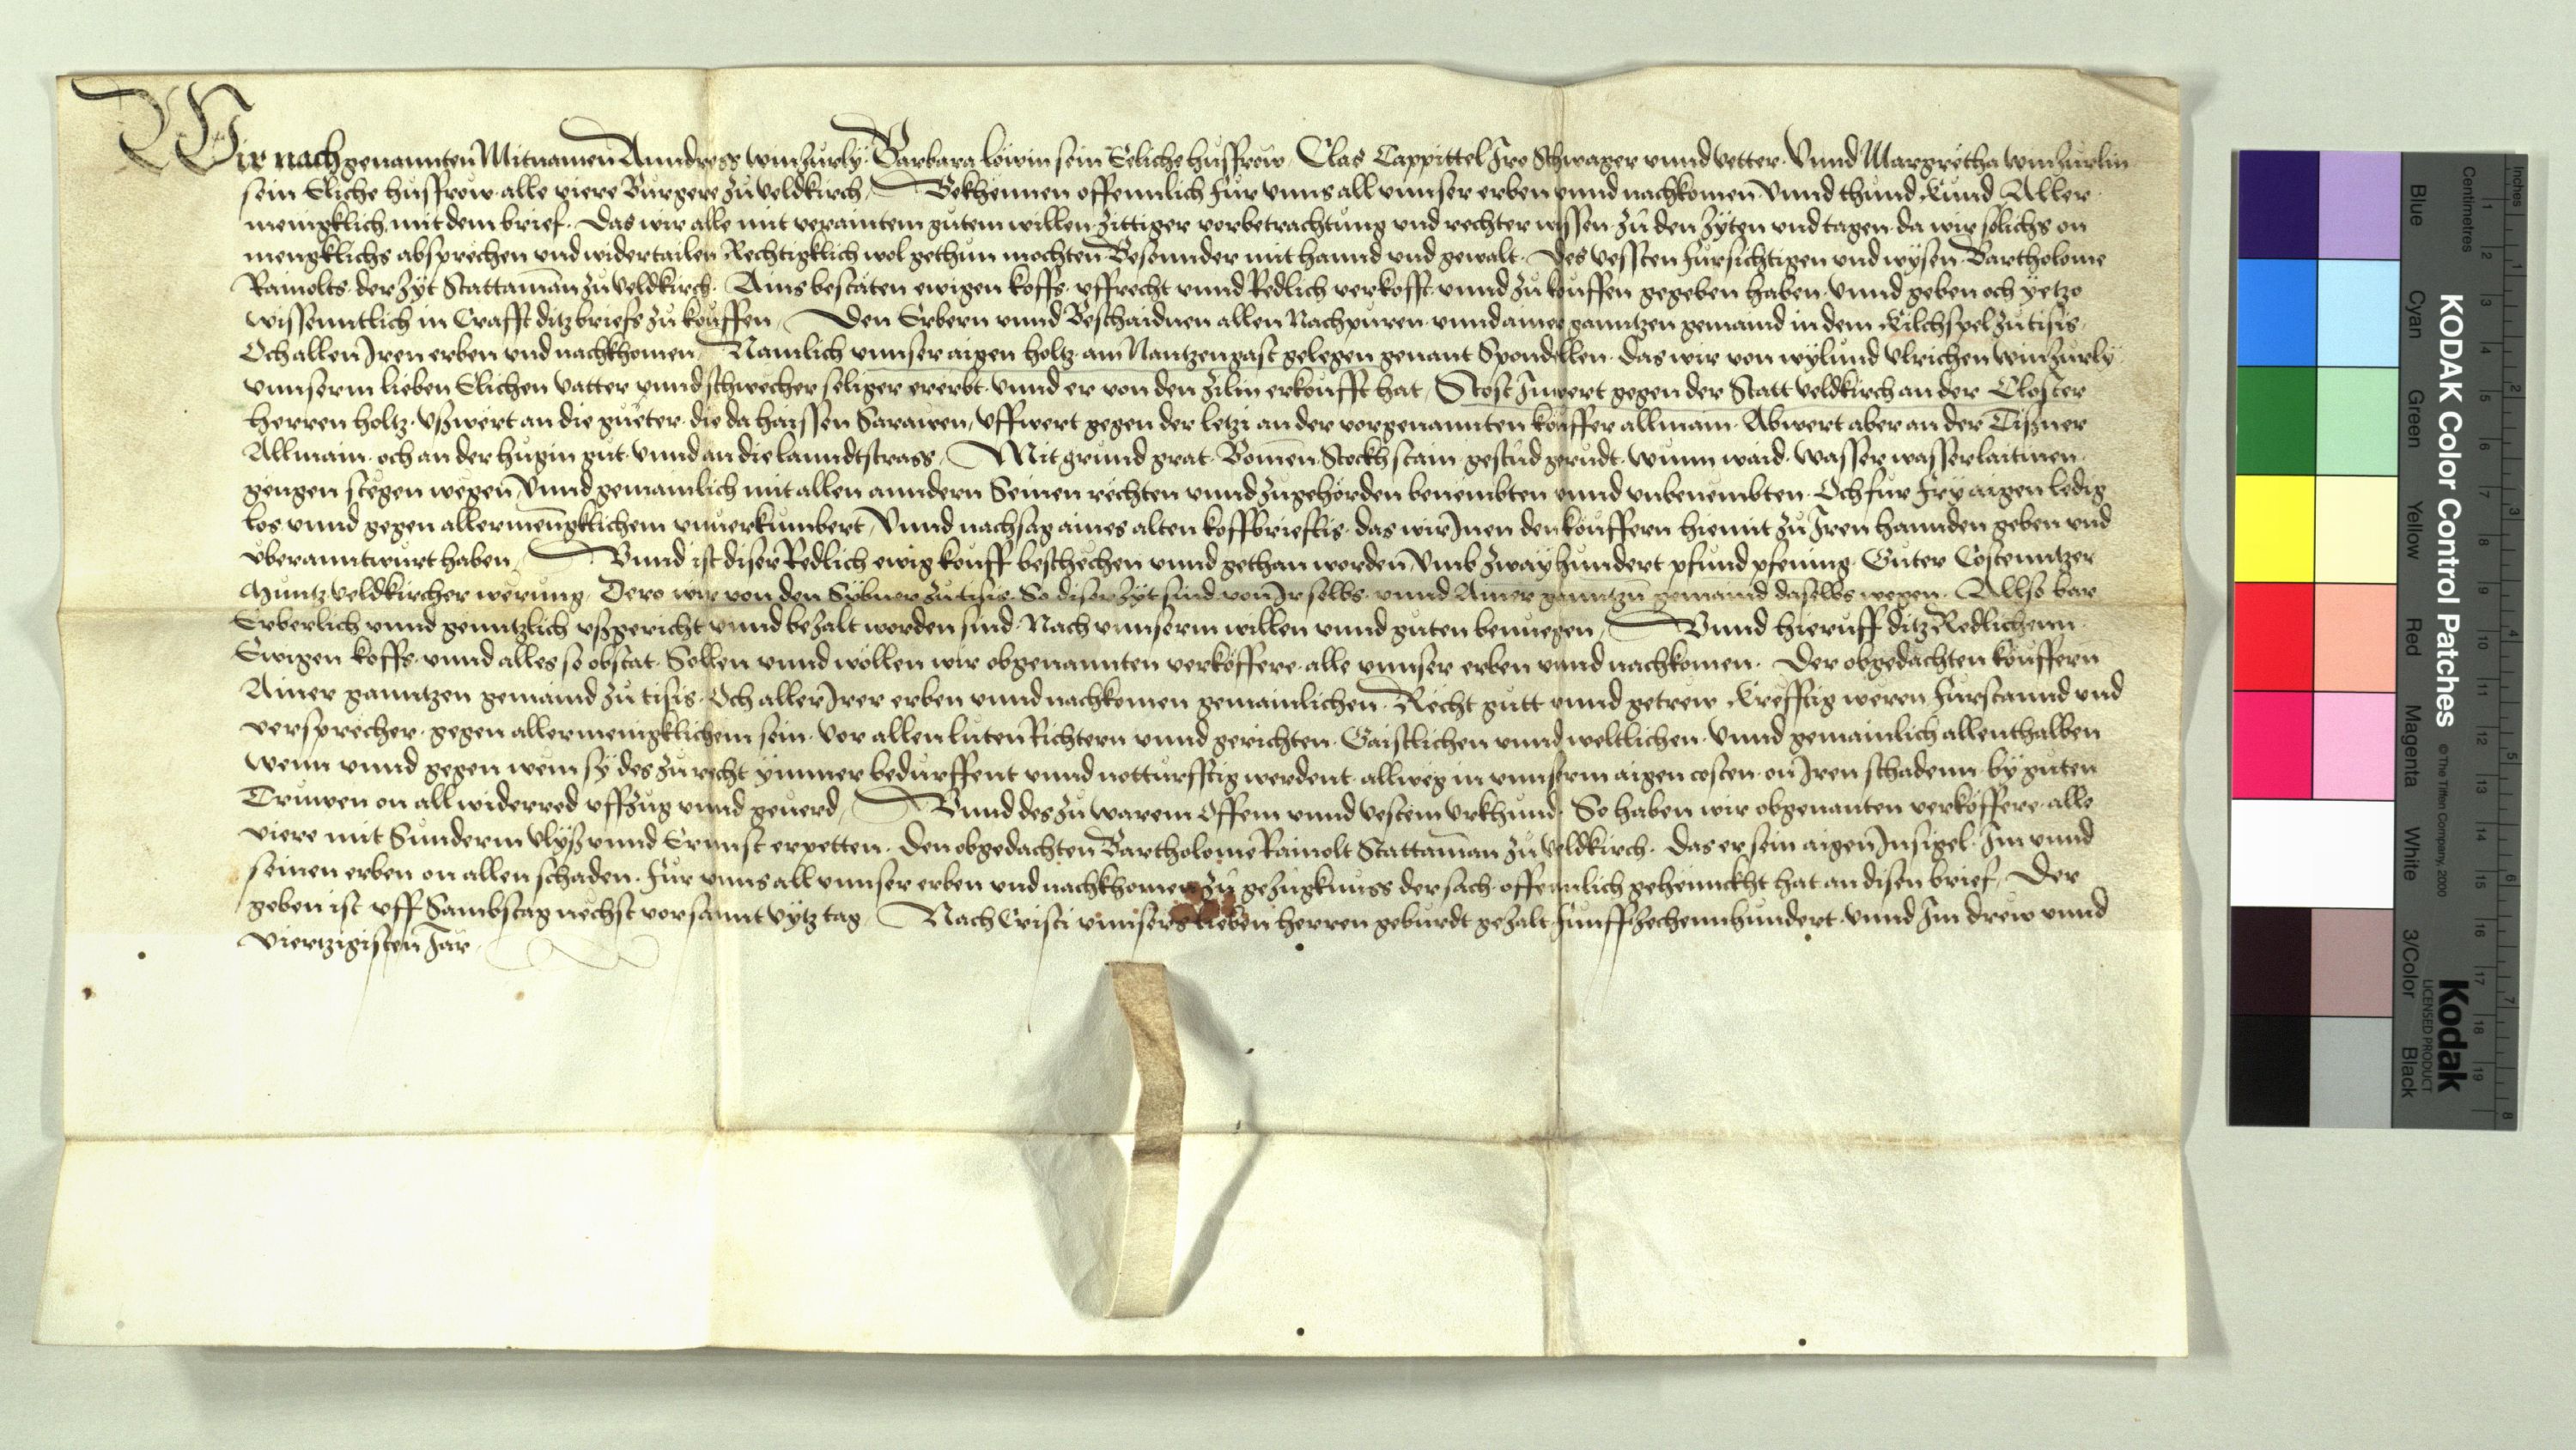 Wir nachgenannten Mitnamen Anndress winzurly Barbara löwin sein Eeliche husfrow Clas Cappittel Jro Schwager vnnd vetter Vnnd Margretha winzurlin
sein Eliche husfrow alle viere Burgere zu veldkirch Bekhennen offennlich für vnns all vnnser erben vnnd nachkomen vnnd thund kund Aller
menigklich mit dem brief Das wir alle mit veraintem gutem willen zittiger vorbetrachtung vnd rechter wissen zu den zyten vnd tagen da wir sölichs on
mengklichs absprechen vnd widertailen Rechtigklich wol gethun mochten Besonnder mit hannd vnd gewalt Des vessten fursichtigen vnd wysen Bartholome
Rainolts der zyt Stattaman zu veldkirch Ains bestäten ewigen koffs vffrecht vnnd Redlich verkofft vnnd zu kouffen gegeben haben vnnd geben och yetzo
wissenntlich in Crafft ditz briefs zu kouffen Den Erbern vnnd Beschaidnen allen Nachpuren vnnd ainer ganntzen gemaind in dem Kilchspel zu tisis
Och allen Jren erben vnd nachkhomen Namlich vnnser aigen holtz am Nantzengast gelegen genant Spondellen Das wir von wylund vlrichen winzurly
vnnserm lieben Elichen vatter vnnd schwecher seliger ererbt vnnd er von den zilin erkoufft hat Stost Jnwert gegen der Statt veldkirch an der Closter
herren holtz vßwert an die gueter die da haissen Sarawen vffwert gegen der letzi an der vorgenannten kouffer allmain Abwert aber an der Tißner
Allmain och an der hugin gut vnnd an die lanndtstrass Mit grund grat Bomen Stockh stain gestud gerudt wunn waid wasser wasserlaitinen
gengen stegen wegen vnnd gemainlich mit allen anndern Seinen rechten vnnd zugehörden benembten vnnd vnbenembten Och für fry aigen ledig
los vnnd gegen allermengklichem vnuerkumbert vnnd nach sag aines alten koffbrieffs das wir Jnen den kouffern hiemit zu Jren hannden geben vnd
überanntwurt haben Vnnd ist diser Redlich ewig kouff beschechen vnnd gethan worden vmb zwayhundert pfund pfening Guter Costenntzer
Muntz veldkircher werung Dero wir von den Sybner zu tisis So diser zyt sind von Jr selbs vnnd Ainer ganntzn gemaind daselbs wegen Allso bar
Erberlich vnnd genntzlich vßgericht vnnd bezalt worden sind Nach vnnserm willen vnnd guten benuegen Vnnd hieruff ditz Redlichenn
Ewigen koffs vnnd alles so obstat Sollen vnnd wöllen wir obgenannten verköffere alle vnnser erben vnnd nachkomen Der obgedachten kouffern
Ainer ganntzen gemaind zu tisis Och aller Jrer erben vnnd nachkomen gemainlichen Recht gutt vnnd getrew krefftig weren fürstannd vnd
versprecher gegen allermenigklichem sein vor allen lüten Richtern vnnd gerichten Gaistlichen vnnd weltlichen vnnd gemainlich allenthalben
wenn vnnd gegen wem sy des zu recht ymmer bedurffent vnnd notturfftig werdent allweg in vnnserm aigen costen on Jren schadenn by guten
Truwen on all widerred vffzug vnnd geuerd Vnnd des zu warem Offem vnnd vestem vrkhund So haben wir obgenanten verköffere alle
viere mit Sunderm vlyß vnnd Ernnst erpetten Den obgedachten Bartholome Rainolt Stattaman zu veldkirch Das er sein aigen Jnsigel Jm vnnd
seinen erben on allen schaden für vnns all vnnser erben vnd nachkhomen zu gezügknuss der sach offennlich gehennckht hat an disen brief Der
geben ist vff Sambstag nechst vor sannt vytz tag Nach Cristi vnnsers lieben herren geburdt gezalt funffzechennhundert vnnd Jm drew vnnd
viertzigisten Jar
KODAK Color Control Patches
© The Tiffen Company, 2000
Kodak
LICENSED PRODUCT
Centimetres
Inches
Blue Cyan Green Yellow Red Magenta White 3/Color Black
1 2 3 4 5 6 7 8 9 10 11 12 13 14 15 16 17 18 19
1 2 3 4 5 6 7 8